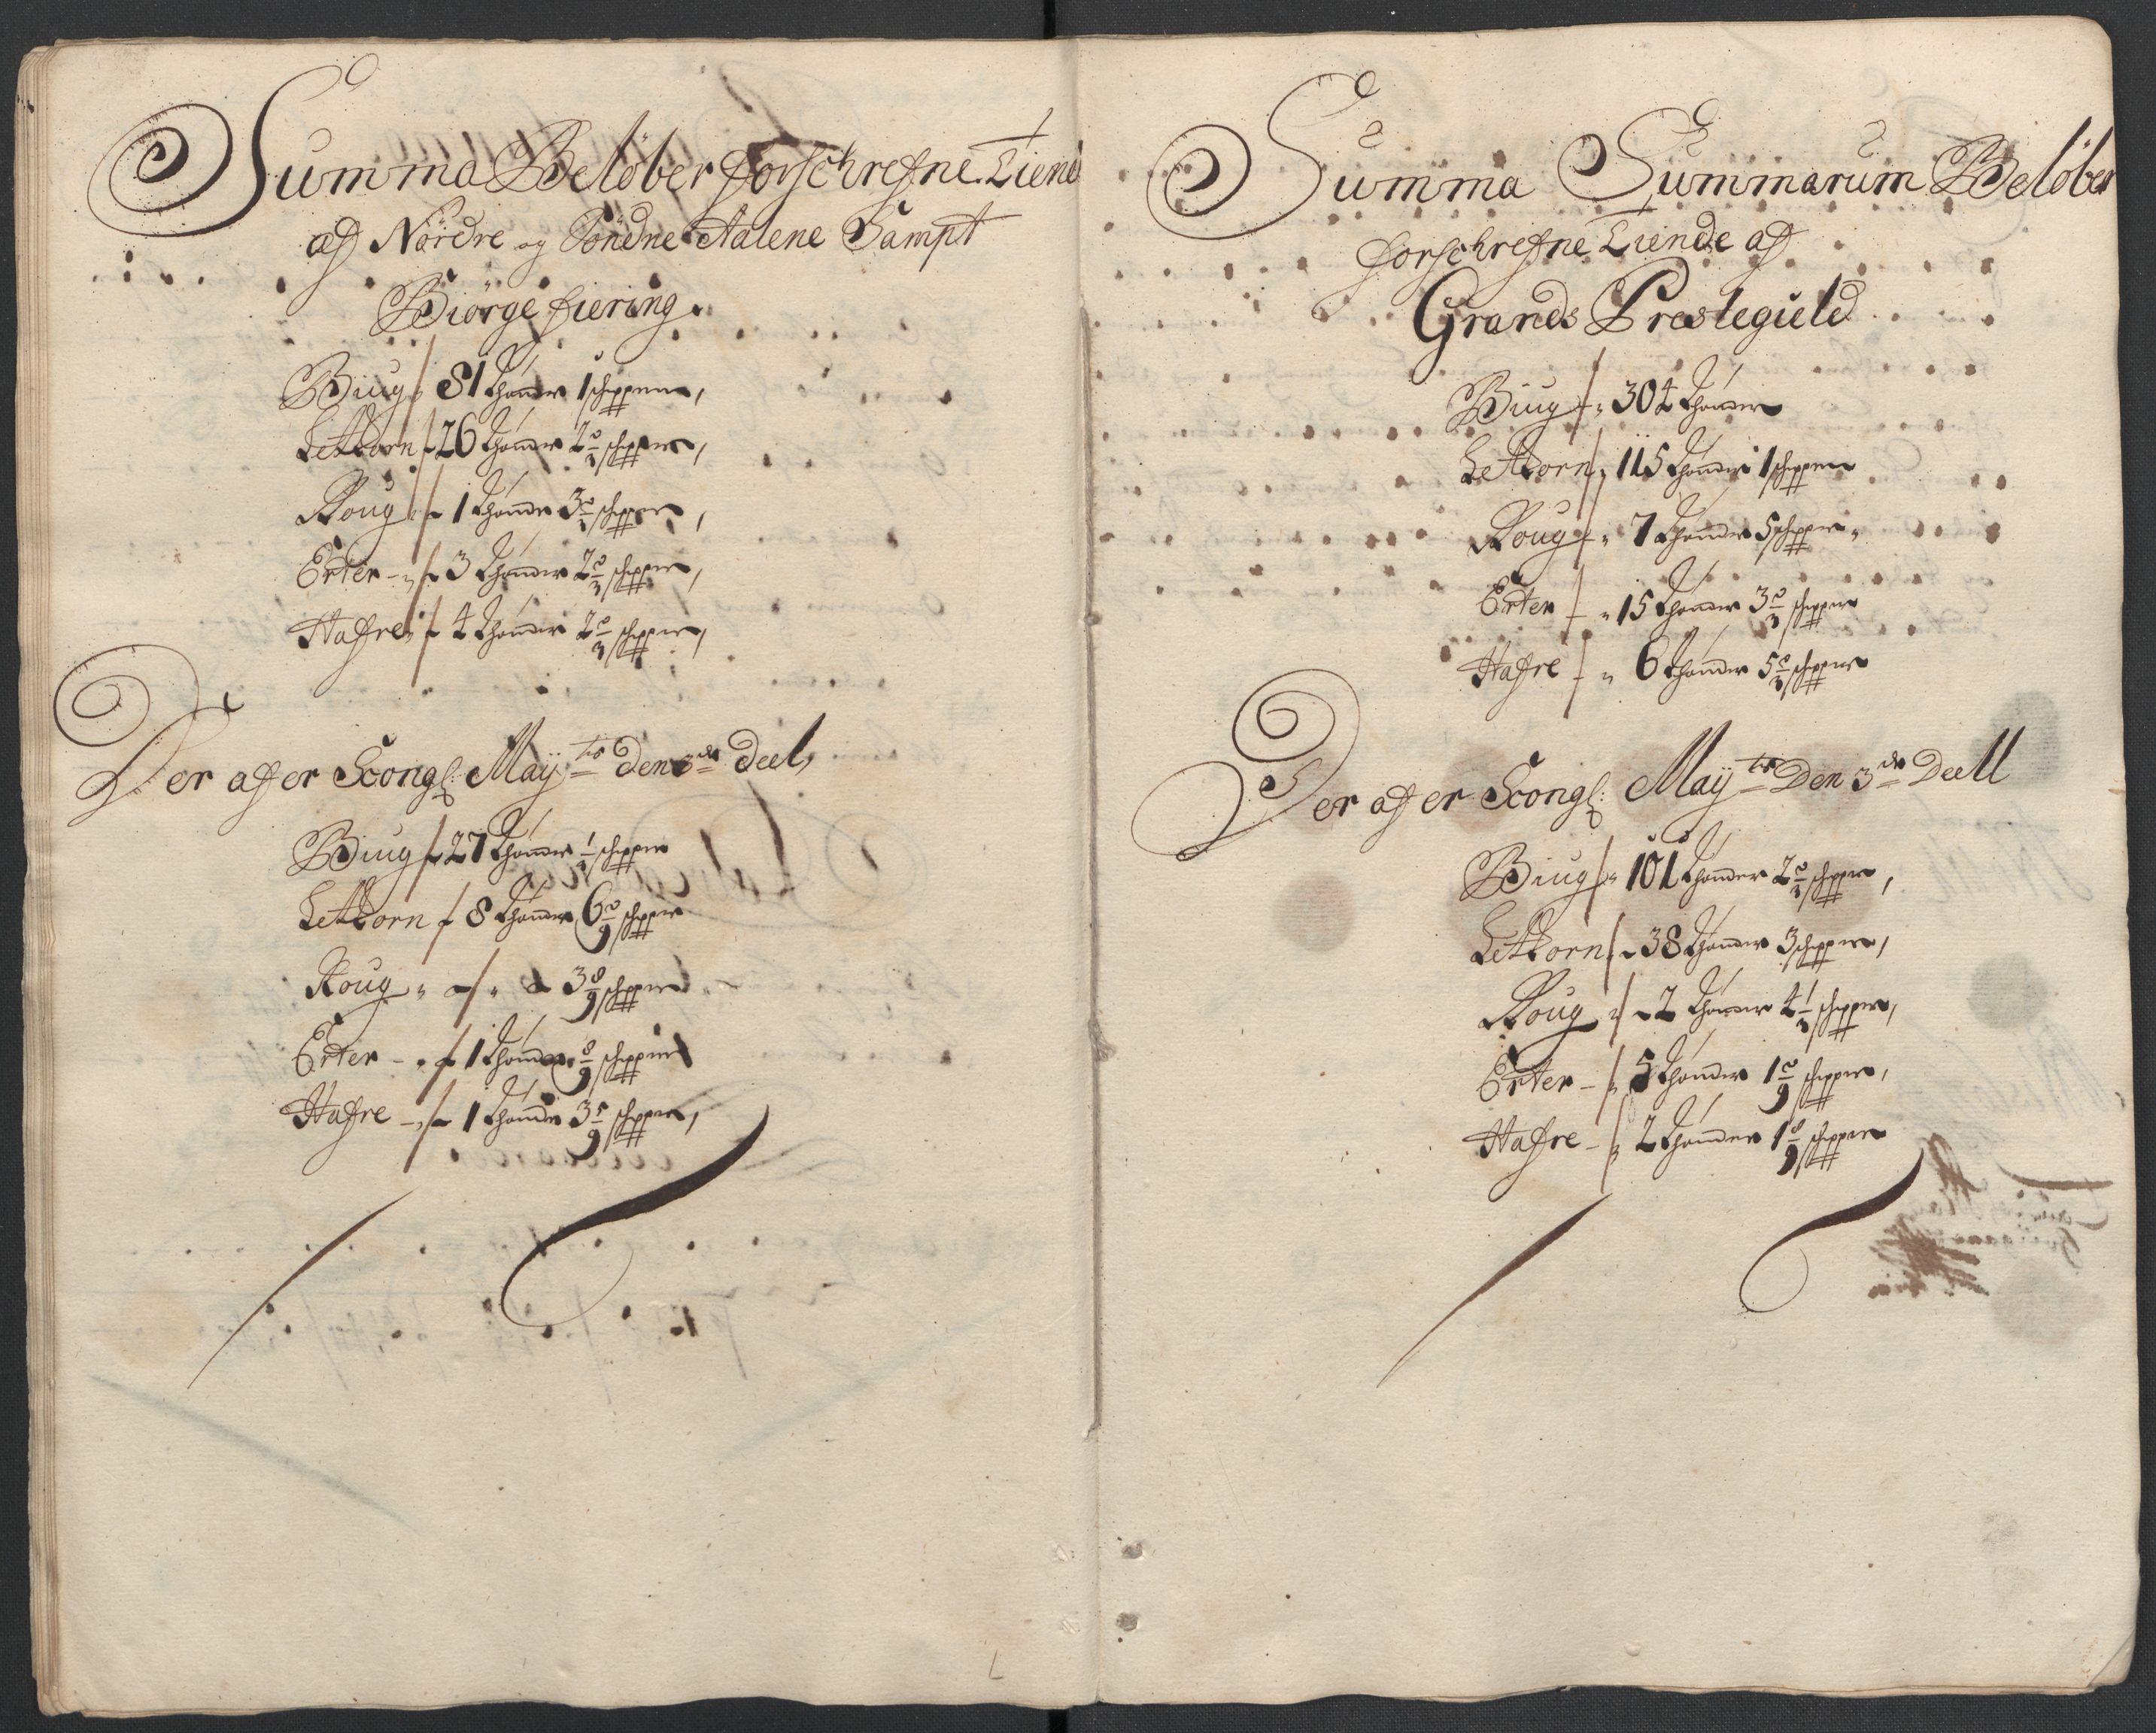 Summa Belöber forschrefne Tiende
af Nördre og Söndre Aalene Sampt
Biörge fiering.
Biug 81 thönder 1 scheppe,
Letkorn 26 thönder 2 2/3 schepper,
Roug 1 thönde 3 2/3 schepper,
Erter - 3 thönder 2 2/3 schepper,
Hafre 4 thönder 2 2/3 schepper,
Der af er Kongl: Maÿtts den 3de deel,
Biug 27 thönder 1/3 scheppe
Letkorn 8 thönder 6 2/9 schepper
Roug " - " 3 8/9 schepper
Erter - 1 thönde 8/9 scheppe
Hafre - 1 thönde 3 5/9 schepper,
Summa Summarum Belöber
forschrefne Tiende af
Grands Prestegield
Biug " 304 thönder
Letkorn " 115 thönder 1 scheppe
Roug " 7 thönder 5 schepper "
Erter " 15 thönder 3 2/3 schepper
Hafre " 6 thönder 5 2/3 schepper
Der af er Kongl: Maÿtts Den 3de Deell
Biug " 101 thönder 2 2/3 schepper,
Letkorn 38 thönder 3 schepper,
Roug 2 thönder 4 1/3 schepper,
Erter - 5 thönder 1 2/9 schepper,
Hafre - 2 thönder 1 8/9 schepper